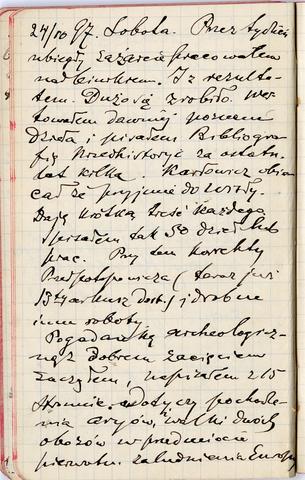 24/10 97. Sobota. Przez tydzień
ubiegły zażarcie pracowałem
nad
I z rezulta-
tem. Dużo się zrobiło.
towałem dawniej poznane
dzieła i pisałem Bibliogra-
fię przedhistoryi za ostatn.
lat kilka. Karłowicz obie-
cał że przyjmie do Wisły.
Daję krótką treść każdego.
Spisałem tak 50 dzieł lub
prac. Przy tem korekty
Przedpotopowicza (teraz już
arkusz dost.) i drobne
inne roboty.
Pogadankę archeologicz-
ną z dobrem zacięciem
zacząłem, napisałem z 15
stronic. dotyczy pochodze-
nia aryów, i walki dwóch
obozów w przedmiocie
pierwotn. zaludnienia Europy